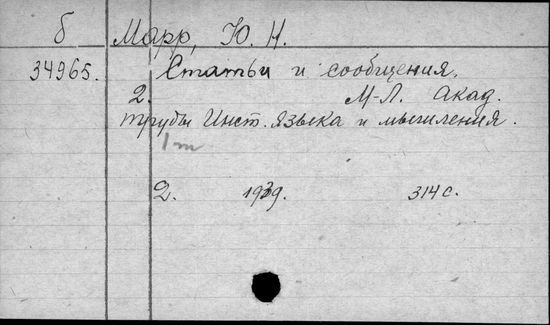 б Марр, Ю. Н.
34965. Статьи и сообщения.
2. М-Л. Акад.
труды Инст. языка и мышления.
1 т
2. 1939. 314 с.